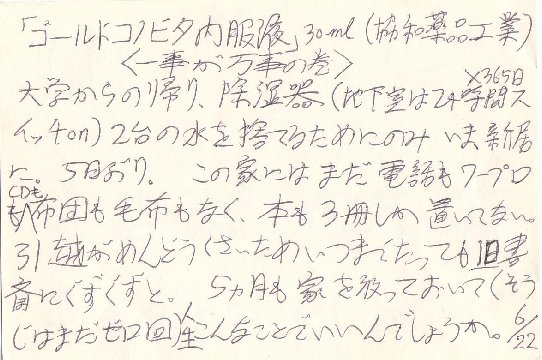 「ゴールドコノビタ内服液」30ml(協和薬品工業)
<一事が万事の巻>
大学からの帰り、除湿器(地下室は24時間×365日ス
イッチon)2台の水を捨てるためにのみいま新居
に。5日ぶり。この家にはまだ電話もワープロ
もCDも布団も毛布もなく、本も3冊しか置いてない。
引越がめんどうくさいためいつまでたっても旧書
斎にぐずぐずと。5ヵ月も家を放っておいて(そう
じはまだゼロ回)人生こんなことでいいんでしょうか。6/22